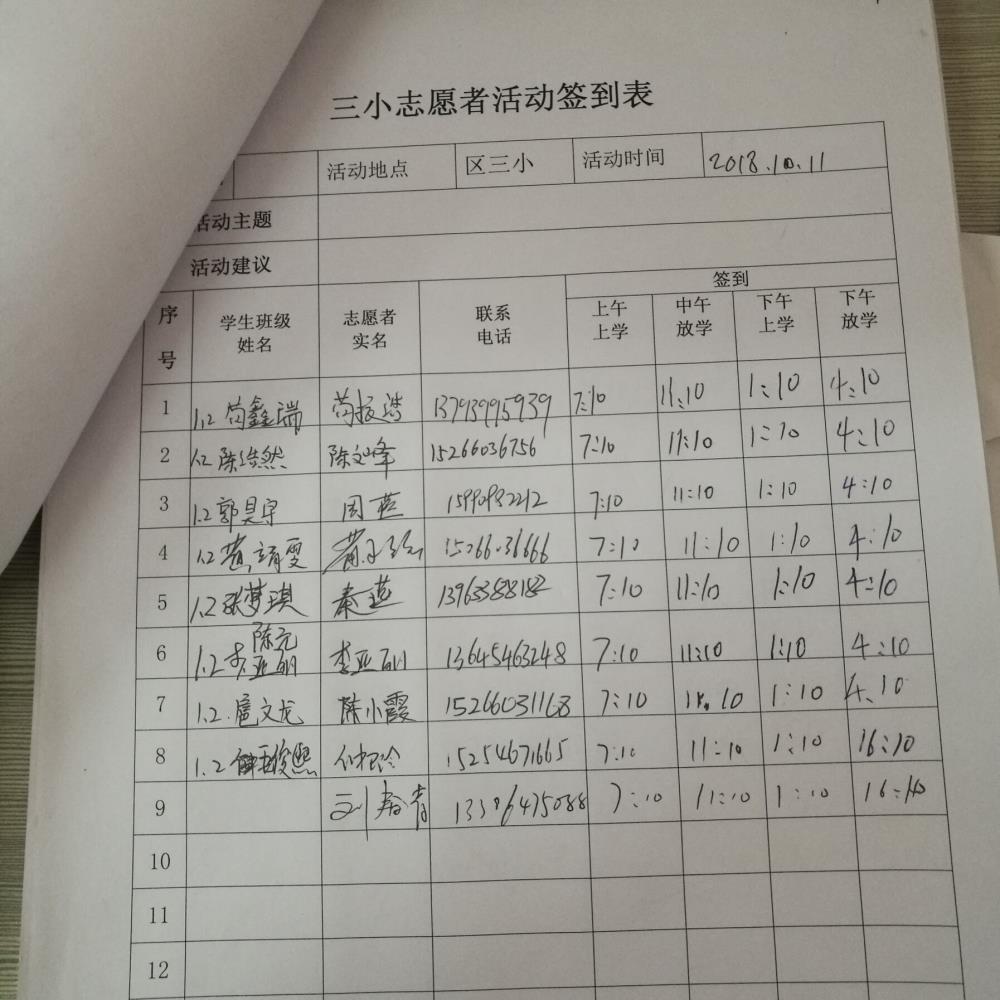 三小志愿者活动签到表
活动地点 区三小 活动时间 2018.10.11
活动主题
活动建议
序号 学生班级姓名 志愿者实名 联系电话 签到
上午上学 中午放学 下午上学 下午放学
1 1.2 苟鑫瑞 13793995939 7:10 11:10 1:10 4:10
2 1.2 陈浩然 陈文峰 15266036756 7:10 11:10 1:10 4:10
3 1.2 郭昊宇 周燕 15990982212 7:10 11:10 1:10 4:10
4 1.2 黄靖雯 15266036666 7:10 11:10 1:10 4:10
5 1.2 张梦琪 秦莲 13963388182 7:10 11:10 1:10 4:10
6 1.2 陈元 13645463248 7:10 11:10 1:10 4:10
7 1.2. 扈文龙 陈小霞 15266031168 7:10 11.10 1:10 4.10
8 1.2 15254671665 7:10 11:10 1:10 16:10
9 刘春青 13396475088 7:10 11:10 1:10 16:10
10
11
12